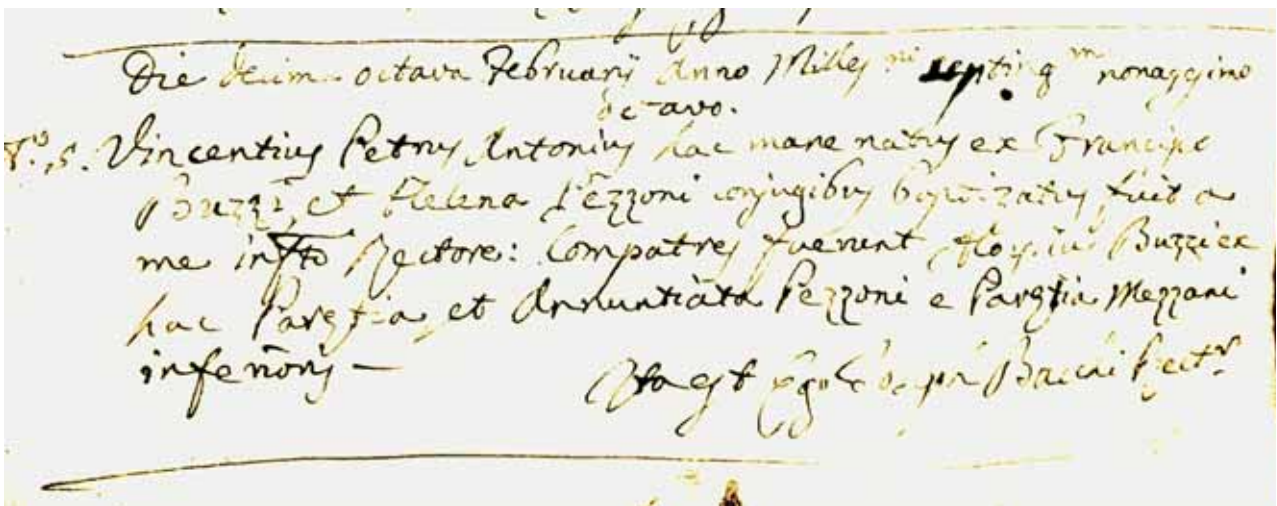 Die decima octava Februarii Anno Milles.mi septing.m nonaggimo
octavo.
N.o 5. Vincentius Petrus Antonius hac mane natus ex Francisco
Buzzi, et Helena Pezzoni conjugibus baptizatus fuit a
me infto Rectore: Compatres fuerunt Aloysius Buzzi ex
hac Parœtia et Annuntiata Pezzoni e Parœtia Mezzani
inferioris —
Ita est Ego Joseph Bacchi Rect.r